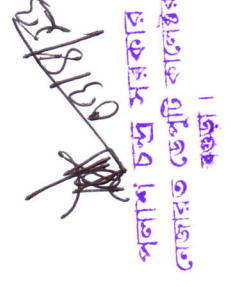 ০3/8/23
পলাশ চন্দ্র সরকার
নেজারত ডেপুটি কালেক্টর
বগুড়া।